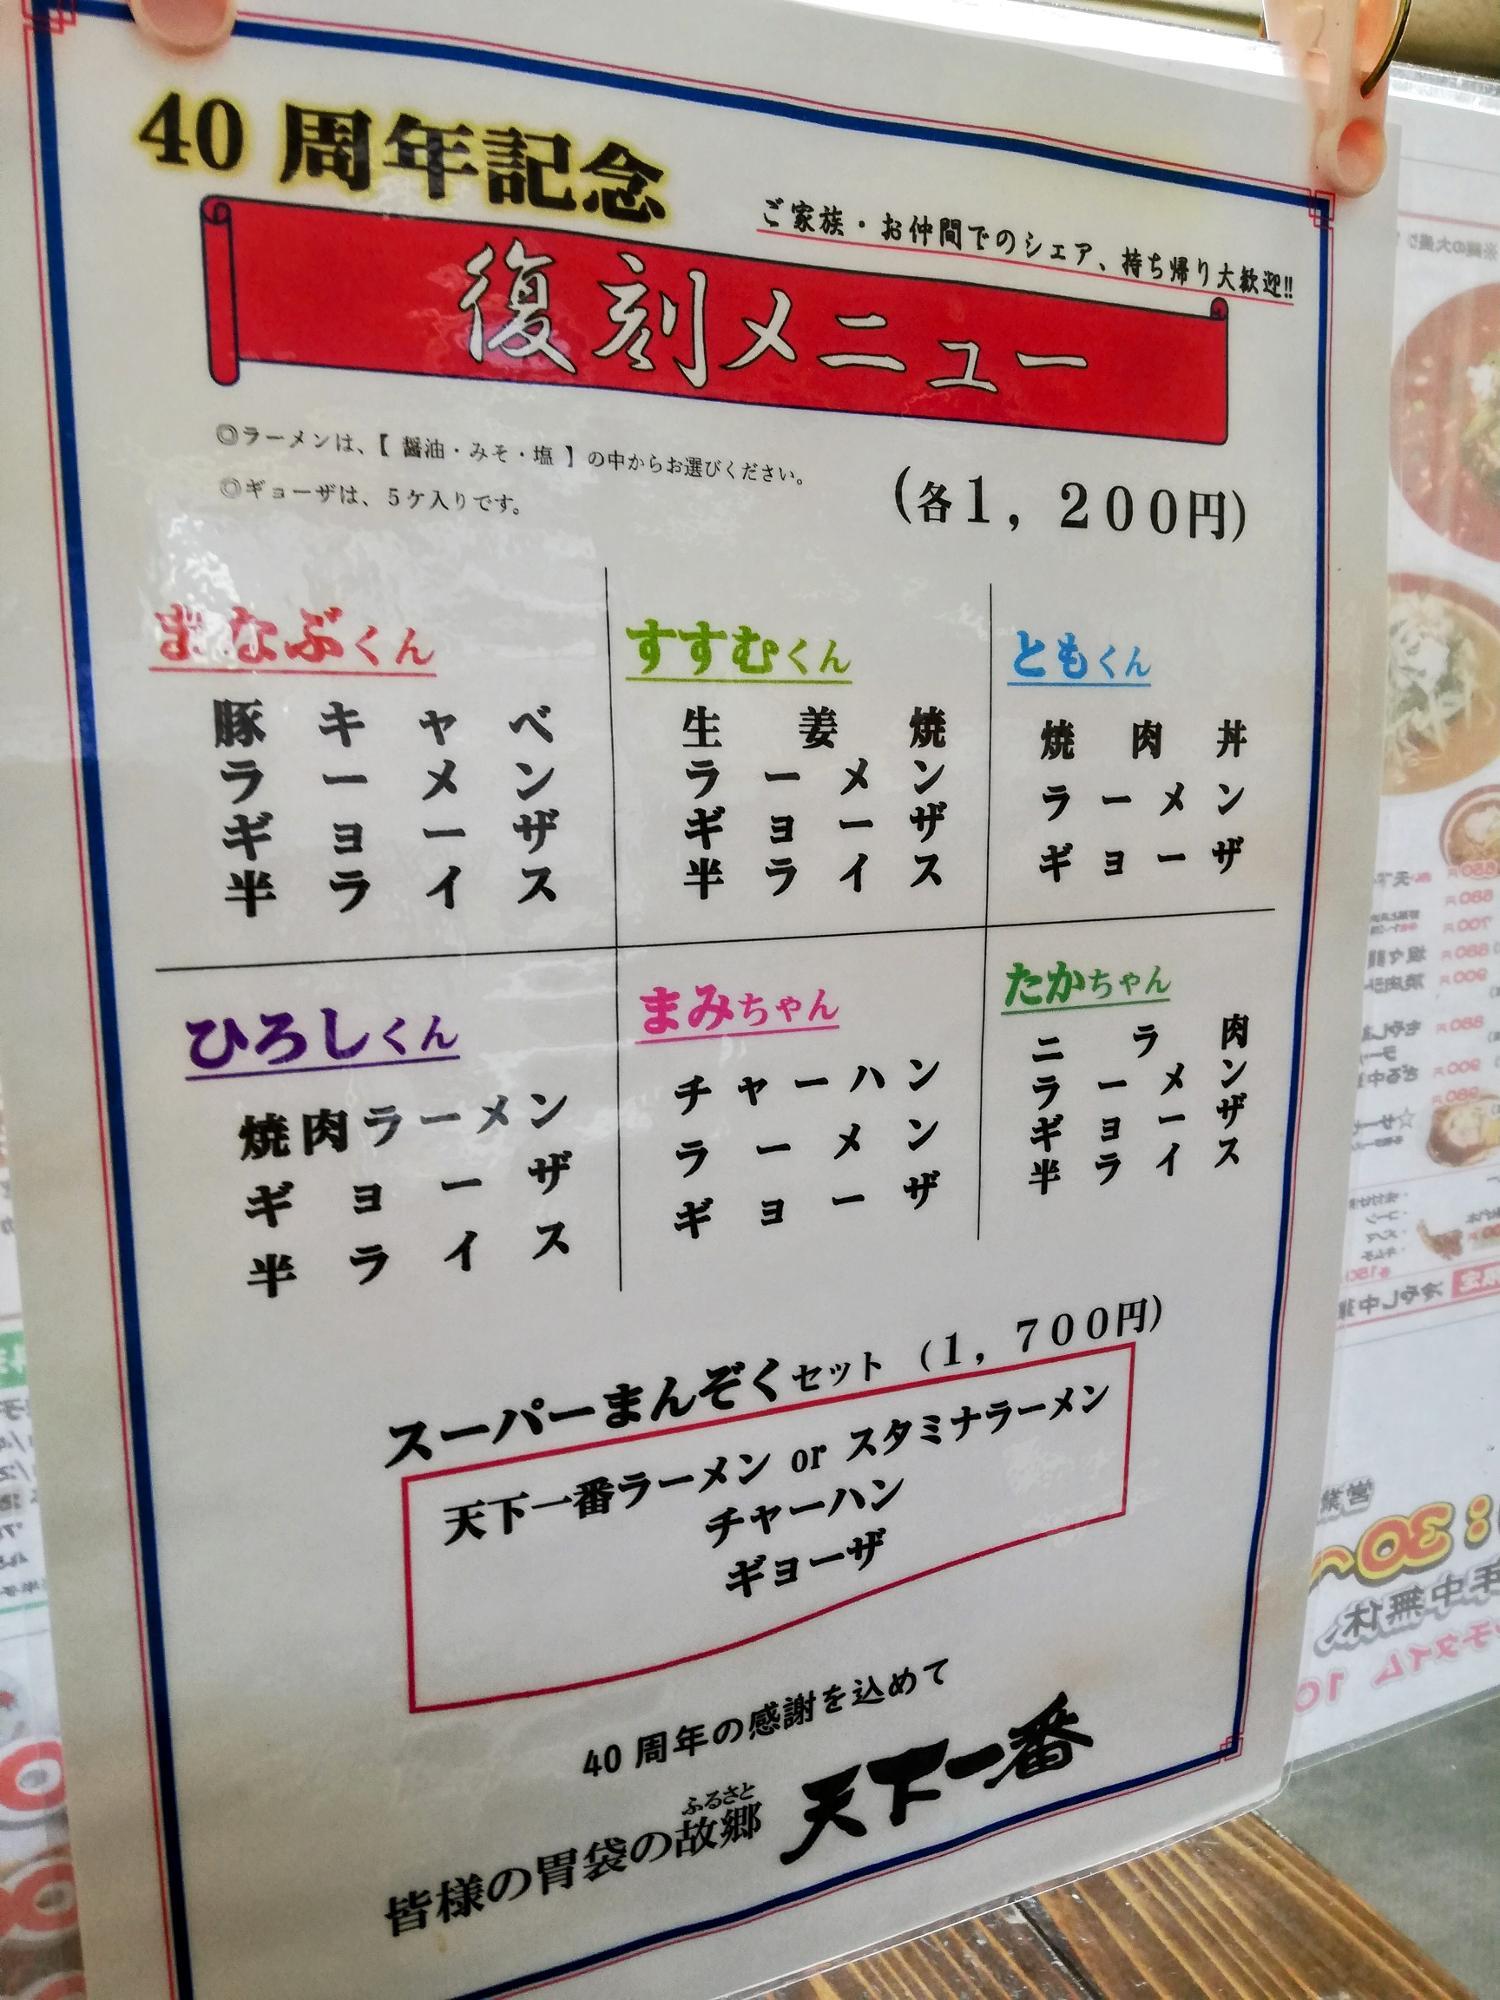 40周年記念
ご家族・お仲間でのシェア、持ち帰り大歓迎!!
復刻メニュー
◎ラーメンは、【 醤油・みそ・塩 】の中からお選びください。
◎ギョーザは、5ケ入りです。
(各1,200円)
まなぶくん
豚キャベ
ラーメン
ギョーザ
半ライス
すすむくん
生姜焼
ラーメン
ギョーザ
半ライス
ともくん
焼肉丼
ラーメン
ギョーザ
ひろしくん
焼肉ラーメン
ギョーザ
半ライス
まみちゃん
チャーハン
ラーメン
ギョーザ
たかちゃん
ニラ肉
ラーメン
ギョーザ
半ライス
スーパーまんぞくセット (1,700円)
天下一番ラーメン or スタミナラーメン
チャーハン
ギョーザ
40周年の感謝を込めて
ふるさと
皆様の胃袋の故郷 天下一番